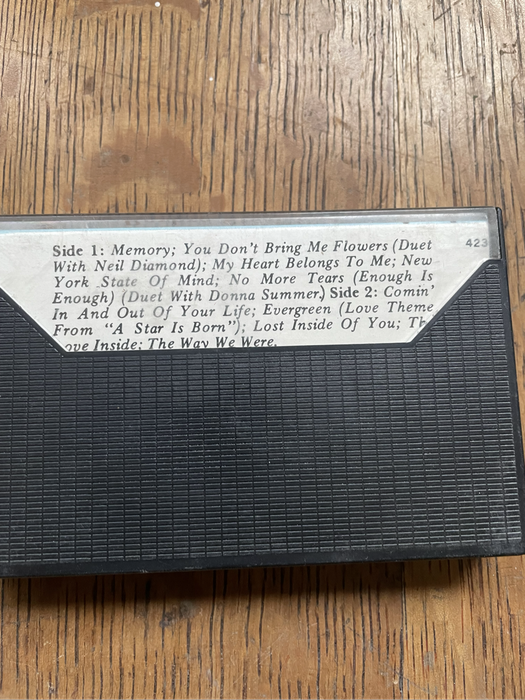 Side 1: Memory; You Don't Bring Me Flowers (Duet
With Neil Diamond); My Heart Belongs To Me; New
York State Of Mind; No More Tears (Enough Is
Enough) (Duet With Donna Summer) Side 2: Comin'
In And Out Of Your Life; Evergreen (Love Theme
From "A Star Is Born"); Lost Inside Of You; Th
ove Inside; The Way We Were.
423